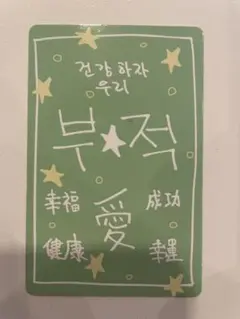 건강하자
우리
부적
幸福 愛 成功
健康 幸運